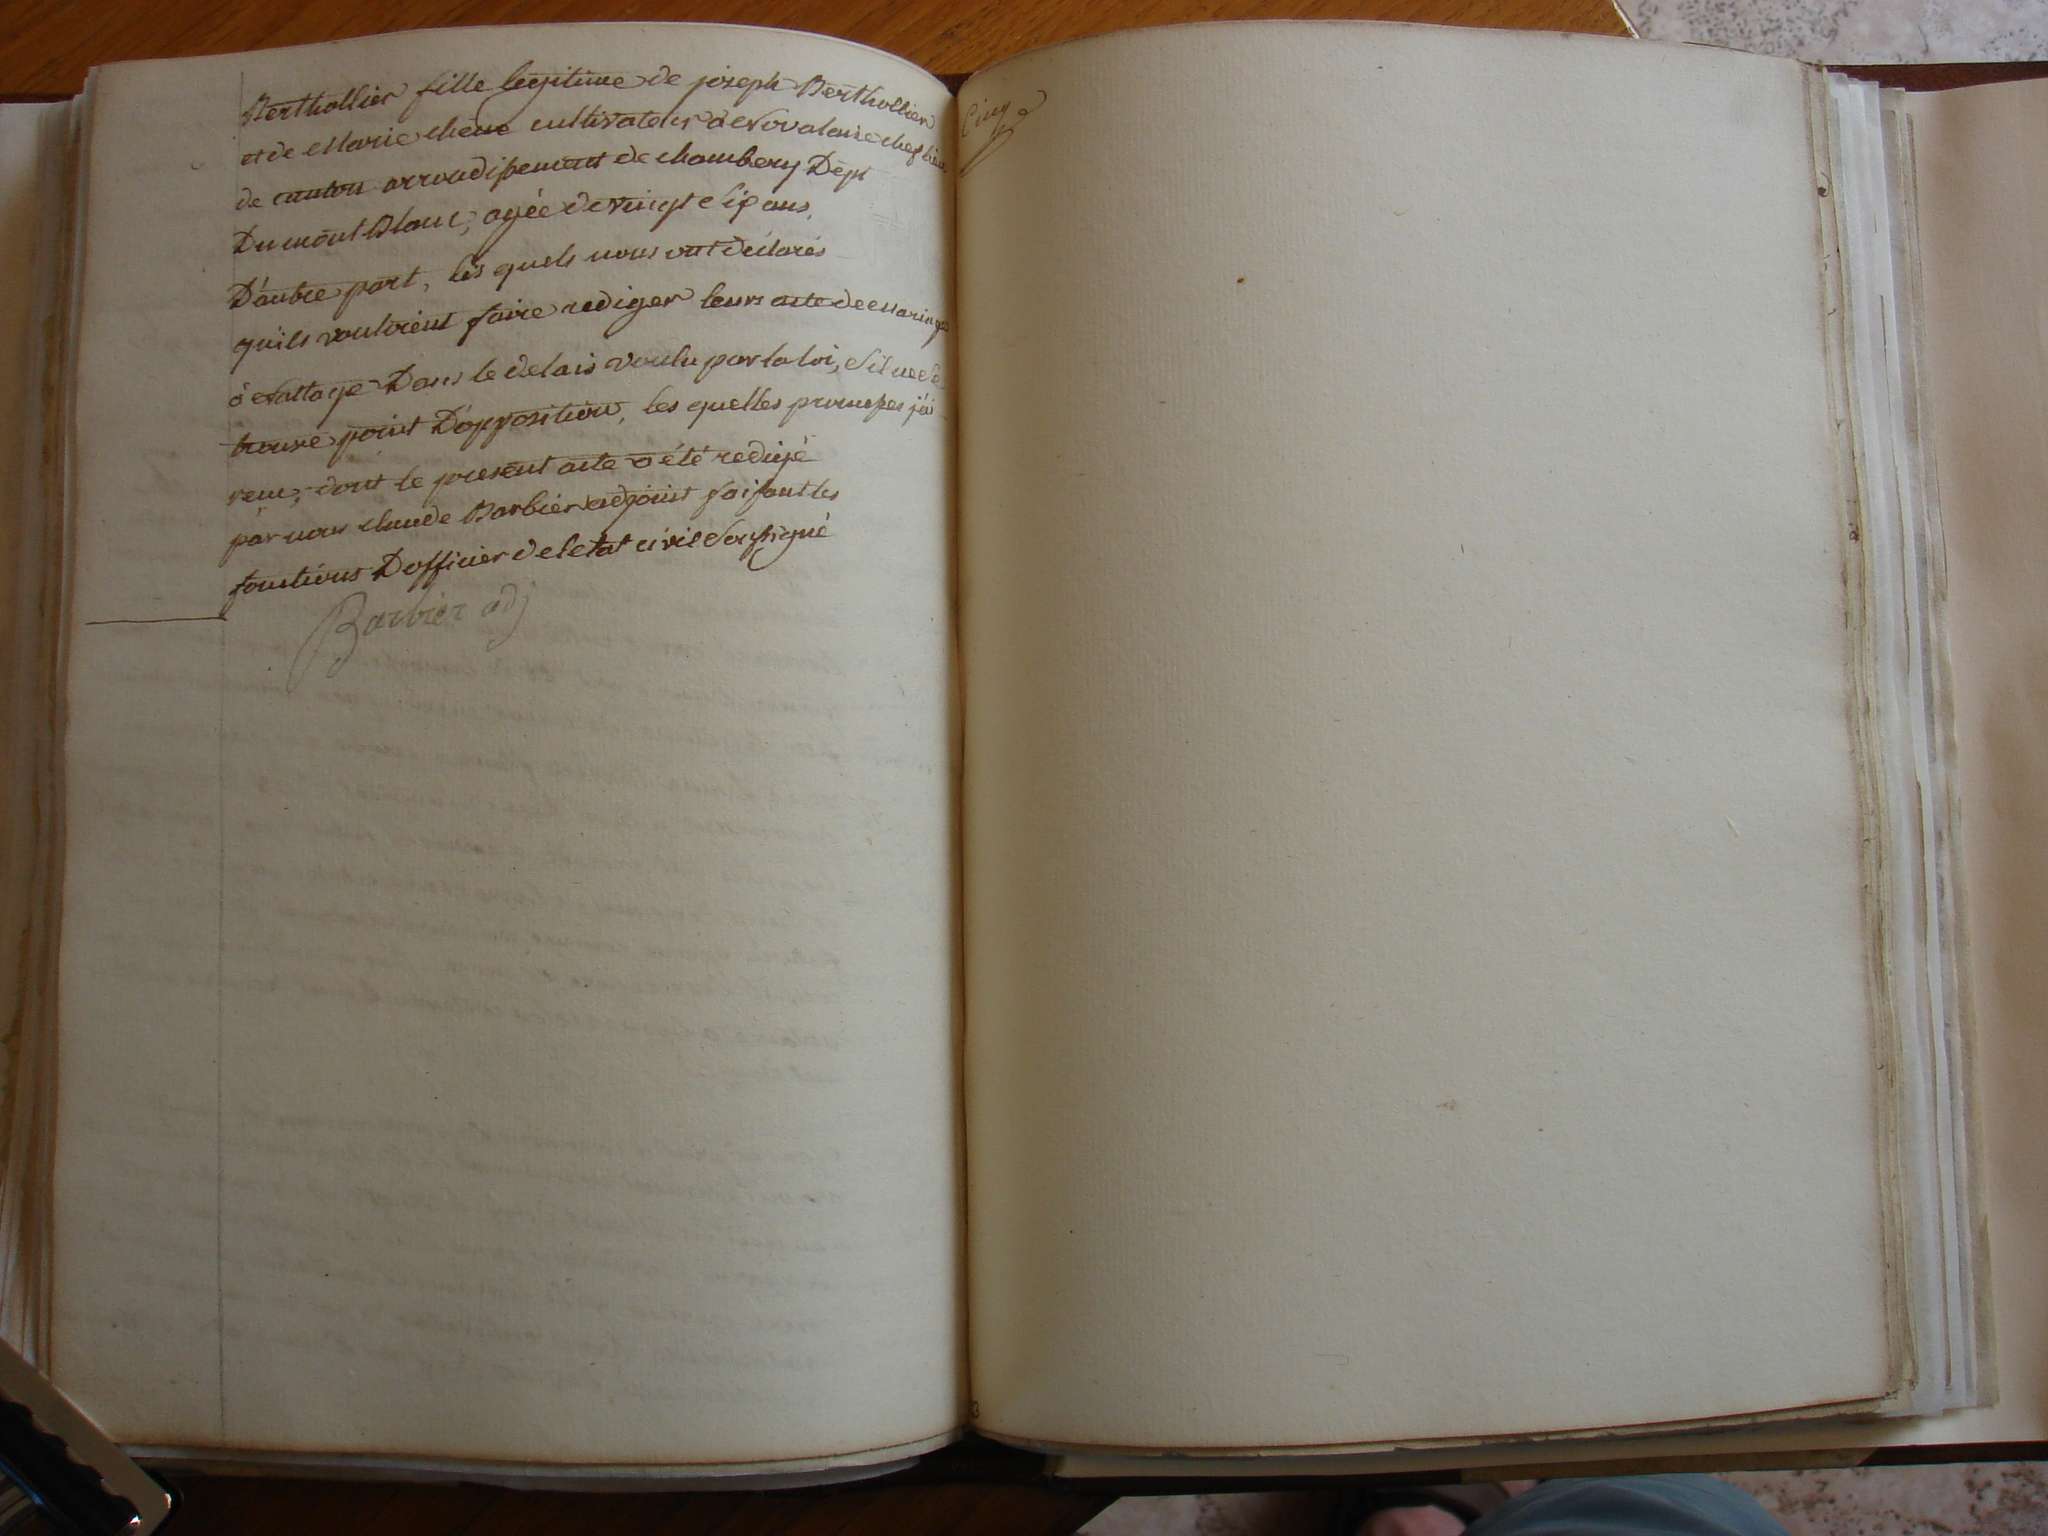 Berthollier fille legitime de joseph Berthollier
et de Marie chêne cultivateur à Novalaise chef lieu
de canton arrondissement de chambery Dept
Du mont Blanc, agée de vingt e six ans,
D'autre part, les quels nous ont déclarés
qu'ils vouloient faire rediger leurs acte de Mariage
à Nattage Dans le delais voulu par la loi, s'il ne se
trouve point D'opposition, les quelles promesses j'ai
recu, dont le present acte a été redigé
par nous claude Barbier adjoint faisant les
fonctions D'officier de letat civil soussigné
Barbier adj
Cinq
3